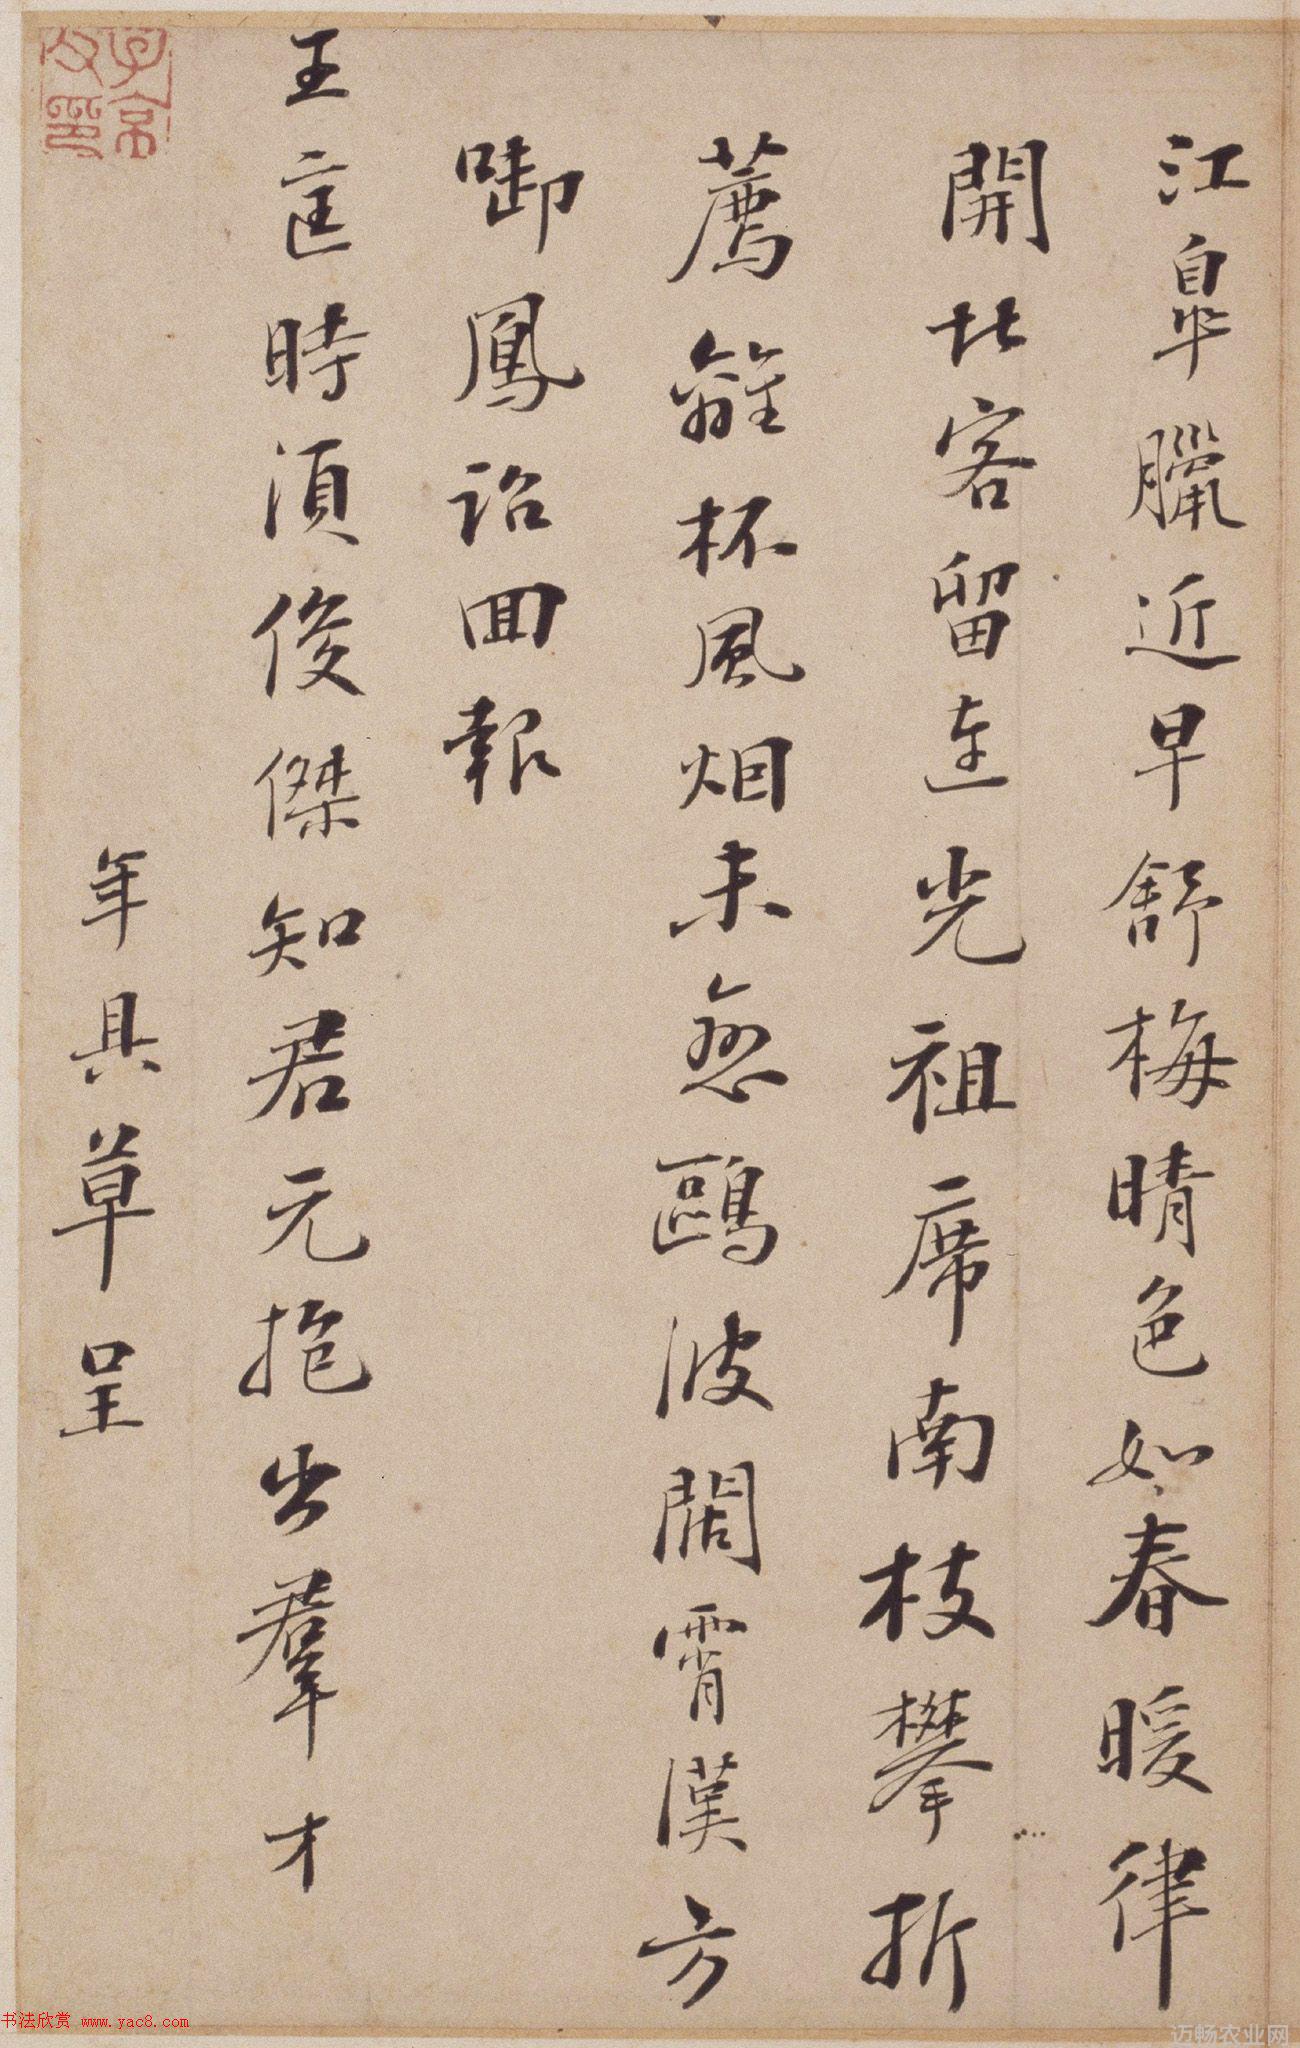 江皋臘近早舒梅晴色如春暖律
開北客留連光祖席南枝攀折
薦離杯風烟未忽鷗波闊霄漢方
啣鳳詔回報
王定時須俊傑知君元抱出羣才
年具草呈
书法欣赏 www.yac8.com
迈畅农业网